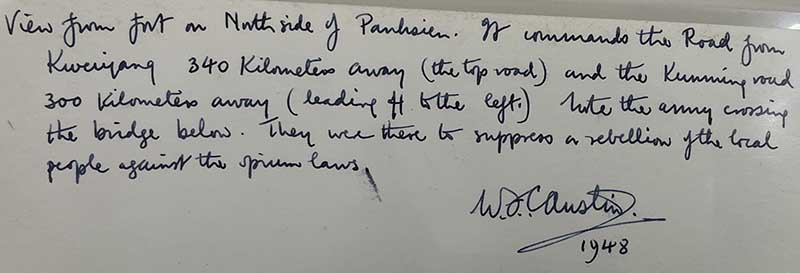 View from fort on North side of Panhsien. It commands the Road from
Kweiyang 340 Kilometers away (the top road) and the Kunming road
300 Kilometers away (leading off to the left.) Note the army crossing
the bridge below. They were there to suppress a rebellion of the local
people against the opium laws.
W.S.C Austin.
1948